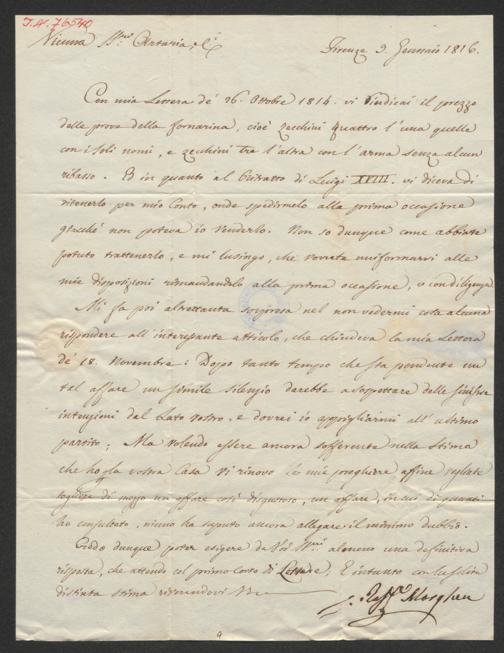 I.N. 76540
Vienna Sri Artaria, e Ci
Firenze 9. Gennaio 1816.
Con mia Lettera de' 26. Ottobre 1814. vi indicai il prezzo
delle prove della Fornarina, cioè zecchini quattro l'una quelle
con i soli nomi, e zecchini tre l'altra con l'arma senza alcun
ribasso. Ed in quanto al Ritratto di Luigi XVIII. vi diceva di
ritenerlo per mio Conto, onde spedirmelo alla prima occasione
giacchè non poteva io venderlo. Non so dunque come abbiate
potuto trattenerlo, e mi lusingo, che vorrete uniformarvi alle
mie disposizioni rimandandolo alla prima occasione, o con diligenza
Mi fa poi altrettanta sorpresa nel non vedermi cosa alcuna
rispondere all'interessante articolo, che chiudeva la mia Lettera
de' 18. Novembre: Dopo tanto tempo che sta pendente un
tal affare un simile silenzio darebbe a sospettare delle sinistre
intenzioni dal Lato vostro, e dovrei io appigliarmi all'ultimo
partito; Ma volendo essere ancora sofferente nella stima
che ho per la vostra Casa vi rinovo le mie preghiere affine
di mezzo un affare così disgustoso, un affare, in cui di quanti
ho consultato, niuno ha saputo ancora allegare il minimo dubbio.
Credo dunque poter esigere da almeno una definitiva
risposta, che attendo col primo Corso di Lettere, E intanto con la solita
distinta stima rimandovi
Raffo Morghen